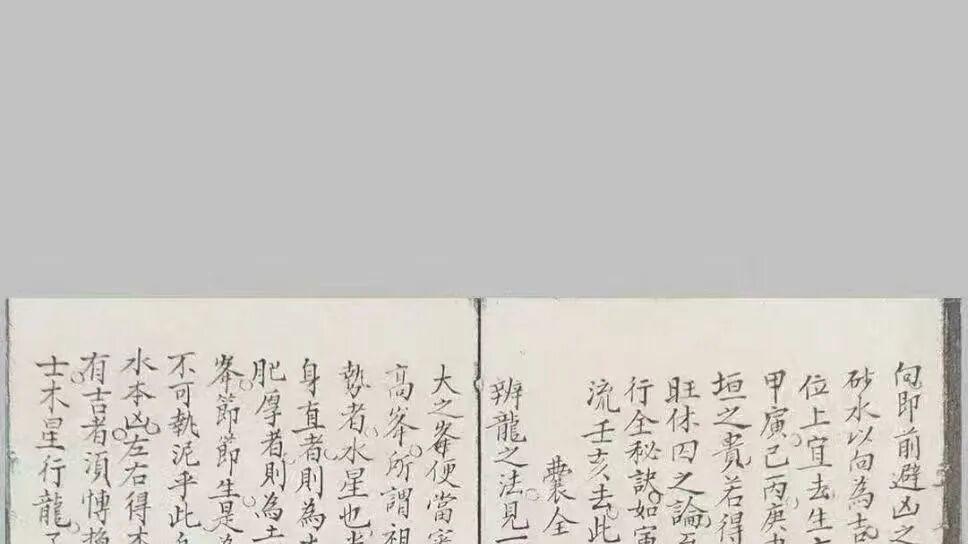 向即前避凶之
砂水以向為吉
位上宜去生
甲寅己丙庚
垣之貴若得
旺休囚之論
行全秘訣如
流壬亥去此
囊全
辨龍之法見一
大之峯便當
高峯所謂祖
勢者水星也
身直者則為
肥厚者則為土
峯節節生是
不可執泥乎此
水本凶左右得
有吉者須博換
士木星行龍